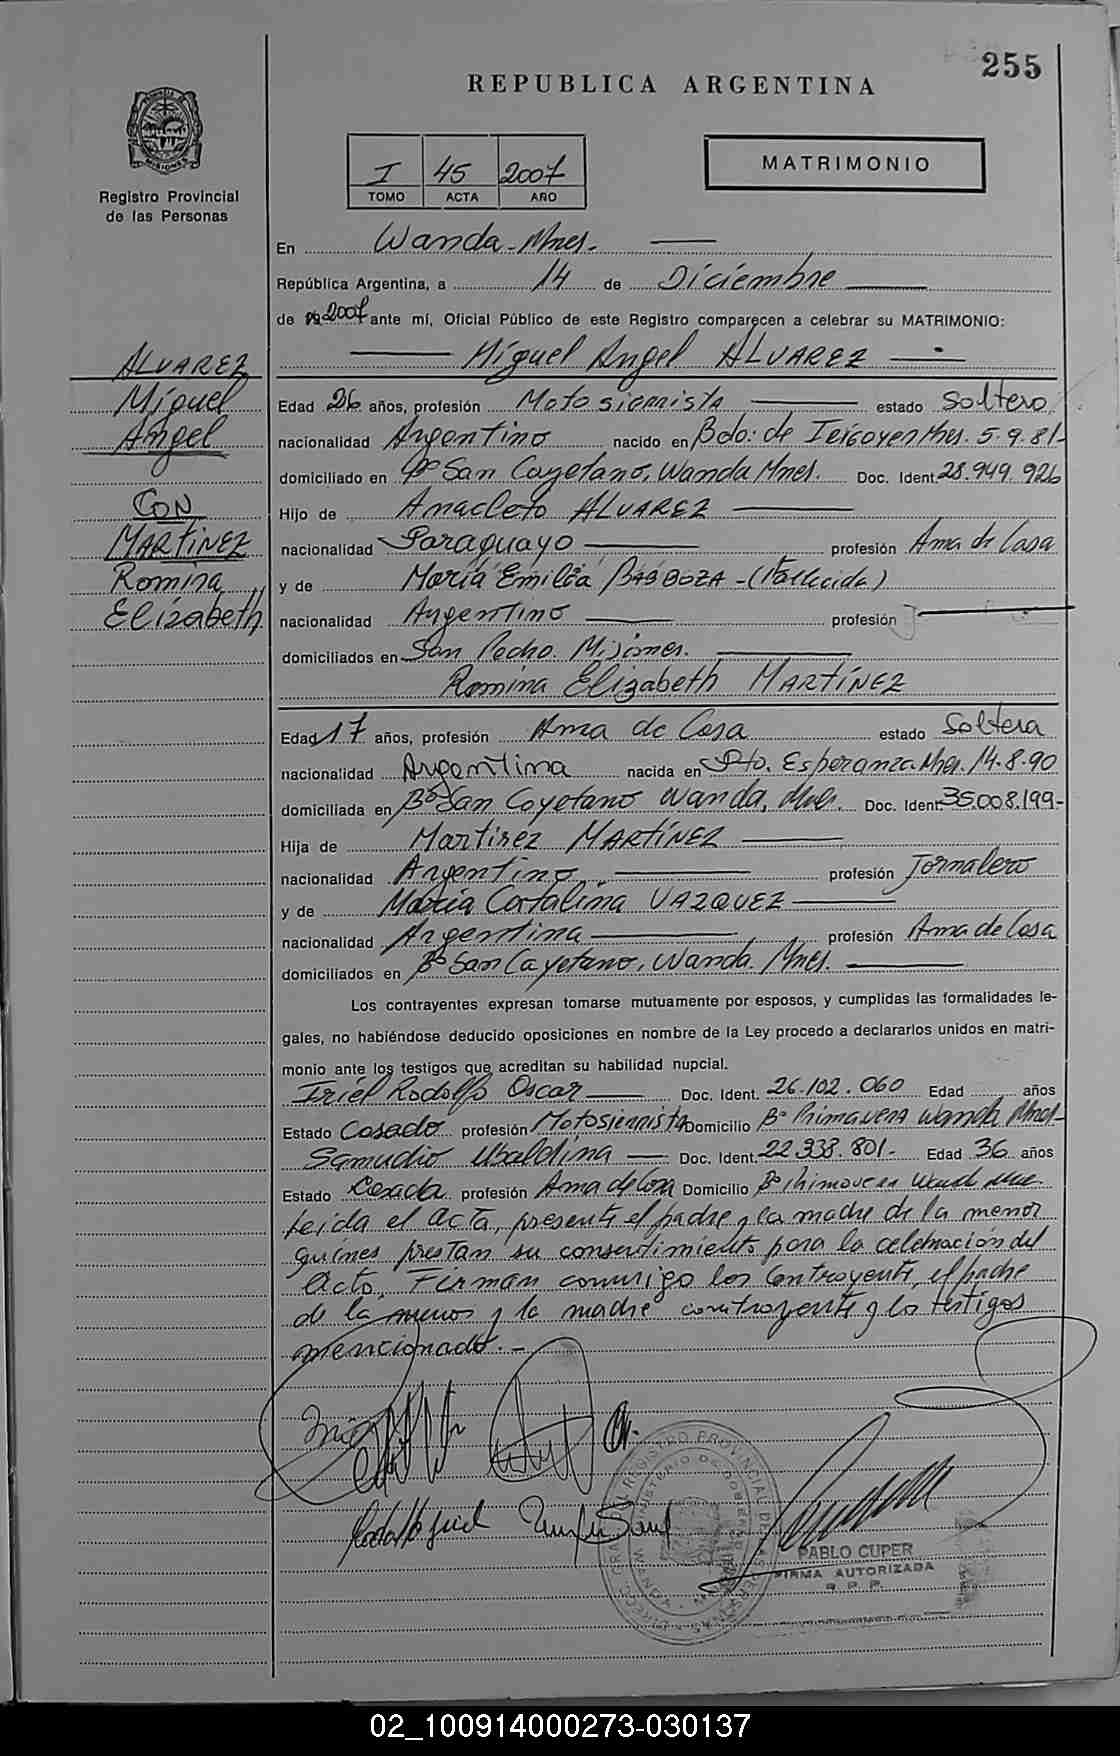 255
REPUBLICA ARGENTINA
Registro Provincial
de las Personas
I 45 2007
TOMO ACTA AÑO
MATRIMONIO
En Wanda - Mnes.-
República Argentina, a 14 de Diciembre
de 2007 ante mí, Oficial Público de este Registro comparecen a celebrar su MATRIMONIO:
Miguel Angel ALVAREZ
ALVAREZ
Miguel
Angel
CON
MARTINEZ
Romina
Elizabeth
Edad 26 años, profesión Motosierrista estado Soltero
nacionalidad Argentino nacido en Bdo: de Irigoyen Mnes. 5.9.81-
domiciliado en Bº San Cayetano, Wanda Mnes. Doc. Ident. 28.949.926
Hijo de Anacleto ALVAREZ
nacionalidad Paraguayo profesión Ama de Casa
y de María Emilia BARBOZA - (Fallecida)
nacionalidad Argentino profesión
domiciliados en San Pedro. Misiones.
Romina Elizabeth MARTÍNEZ
Edad 17 años, profesión Ama de Casa estado Soltera
nacionalidad Argentina nacida en Pto. Esperanza Mnes. 14.8.90
domiciliada en Bº San Cayetano Wanda, Mnes. Doc. Ident. 35.008.199-
Hija de Martinez MARTÍNEZ
nacionalidad Argentino profesión Jornalero
y de María Catalina VAZQUEZ
nacionalidad Argentina profesión Ama de Casa
domiciliados en Bº San Cayetano, Wanda. Mnes.
Los contrayentes expresan tomarse mutuamente por esposos, y cumplidas las formalidades le-
gales, no habiéndose deducido oposiciones en nombre de la Ley procedo a declararlos unidos en matri-
monio ante los testigos que acreditan su habilidad nupcial.
Iriel Rodolfo Oscar Doc. Ident. 26.102.060 Edad años
Estado Casado profesión Motosierrista Domicilio Bº Primavera Wanda Mnes-
Samudio Ubaldina Doc. Ident. 22.338.801- Edad 36 años
Estado Casada profesión Ama de Casa Domicilio Bº Primavera Wanda Mnes.
Leida el acta, presente el padre y la madre de la menor
quines prestan su consentimiento para la celebración del
acto. Firman conmigo los contrayente, el padre
de la menor y la madre contrayente y los testigos
mencionado.-
PABLO CUPER
FIRMA AUTORIZADA
R.P.P.
02_100914000273-030137